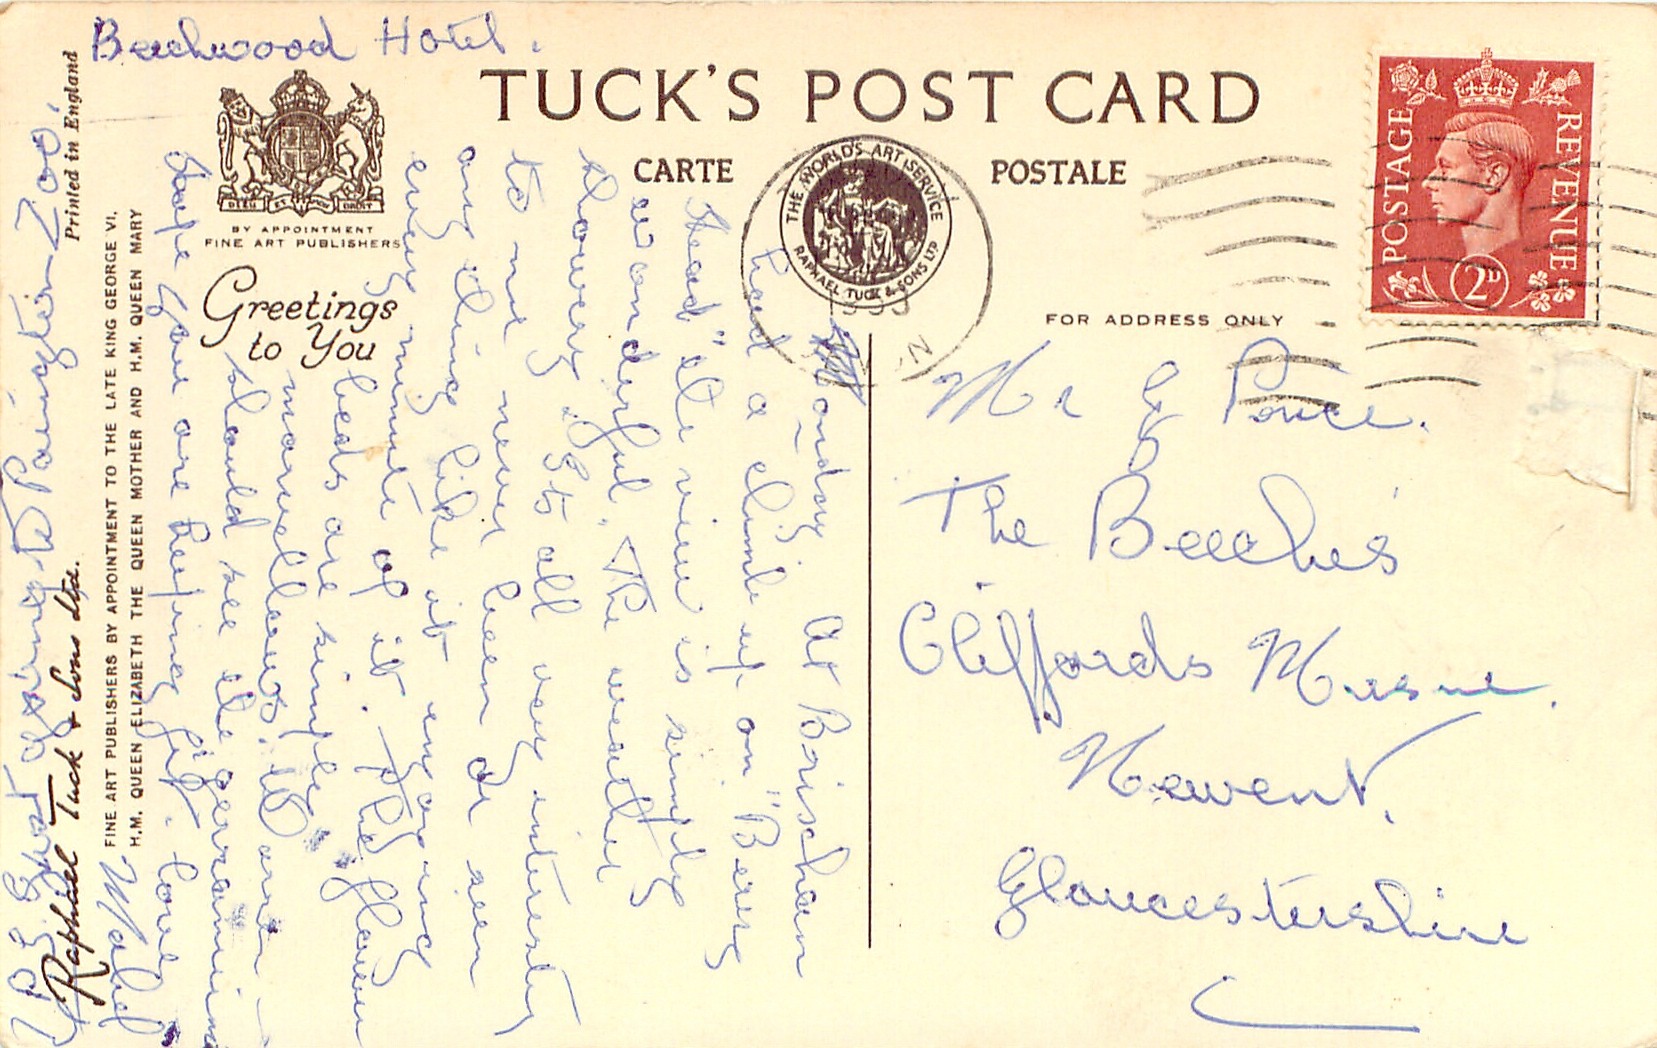 Beechwood Hotel.
TUCK'S POST CARD
CARTE POSTALE
THE WORLD'S ART SERVICE
RAPHAEL TUCK & SONS LTD
POSTAGE REVENUE
2D
DIEU ET MON DROIT
BY APPOINTMENT
FINE ART PUBLISHERS
Greetings
to You
FOR ADDRESS ONLY
Monday At Brixham
had a climb up on "Berry
Head" the view is simply
wonderful. The weather
showery. It's all very interesting
to me never been or seen
any thing like it enjoying
every minute of it. The flower
beds are simply
marvellous.
should see the geraniums
hope you are keeping fit. love
Mabel
P.S. Just going to Paington Zoo.
Printed in England
Raphael Tuck & Sons Ltd.
FINE ART PUBLISHERS BY APPOINTMENT TO THE LATE KING GEORGE VI,
H.M. QUEEN ELIZABETH THE QUEEN MOTHER AND H.M. QUEEN MARY
Mr G Ponce.
The Beeches
Cliffords Mesne.
Newent,
Gloucestershire